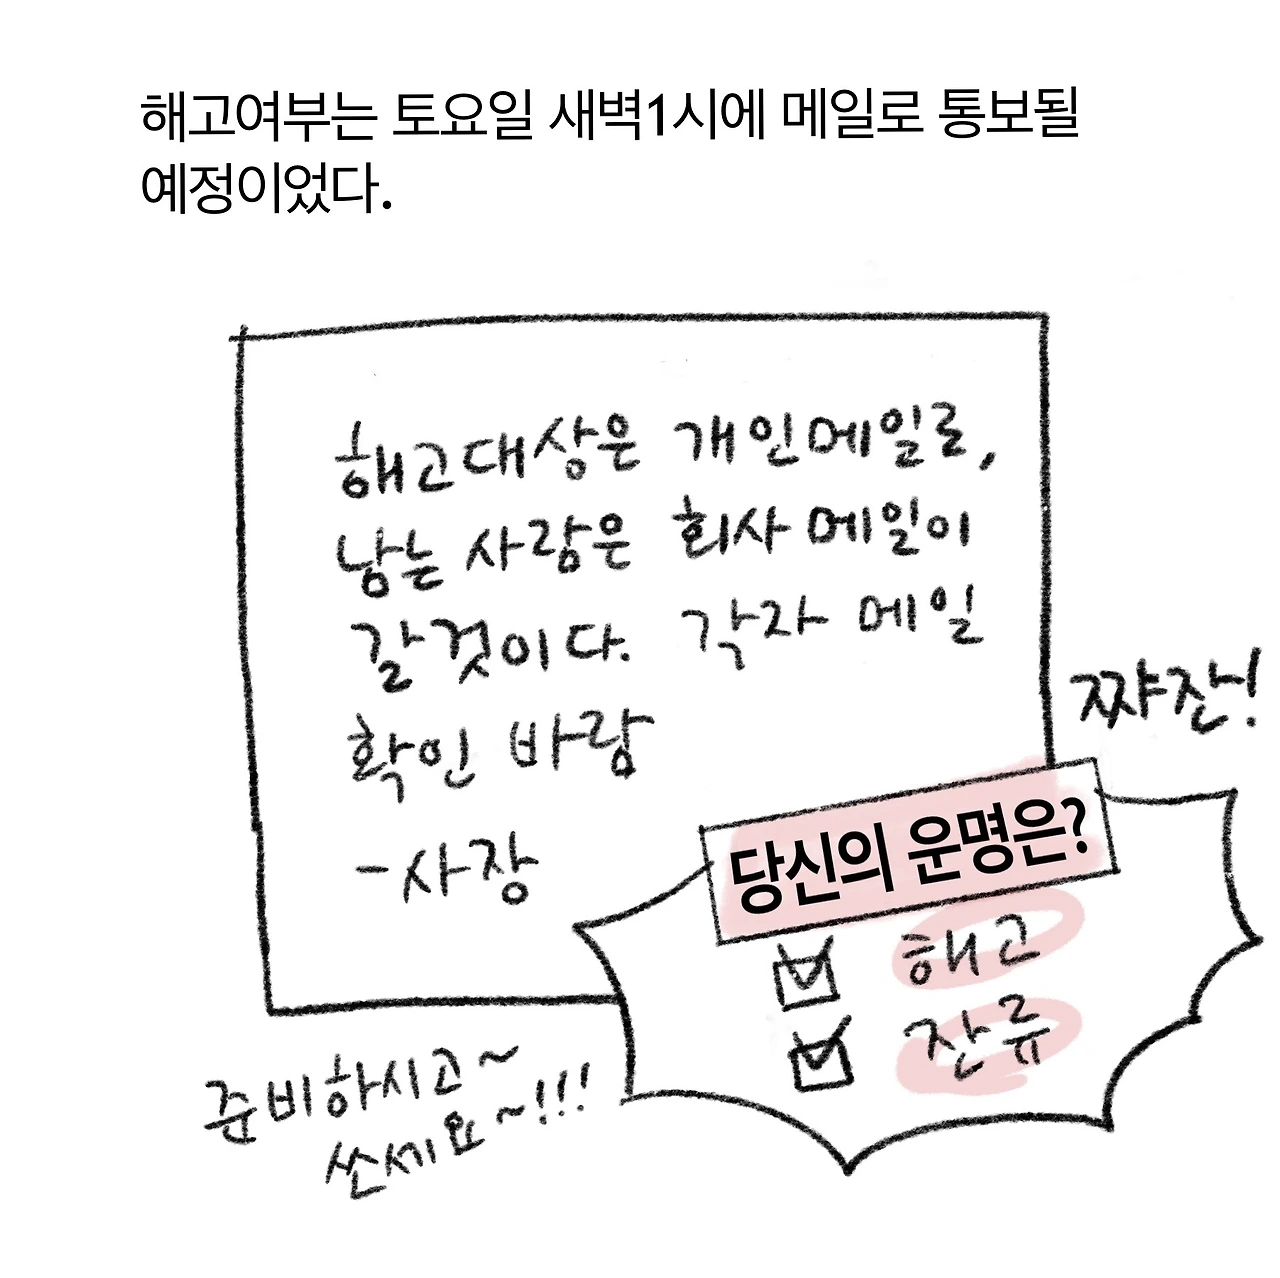 해고여부는 토요일 새벽1시에 메일로 통보될
예정이었다.
해고대상은 개인메일로,
남는 사람은 회사 메일이
갈것이다. 각자 메일
확인 바람
-사장
쨔잔!
당신의 운명은?
해고
잔류
준비하시고~
쏘세요~!!!